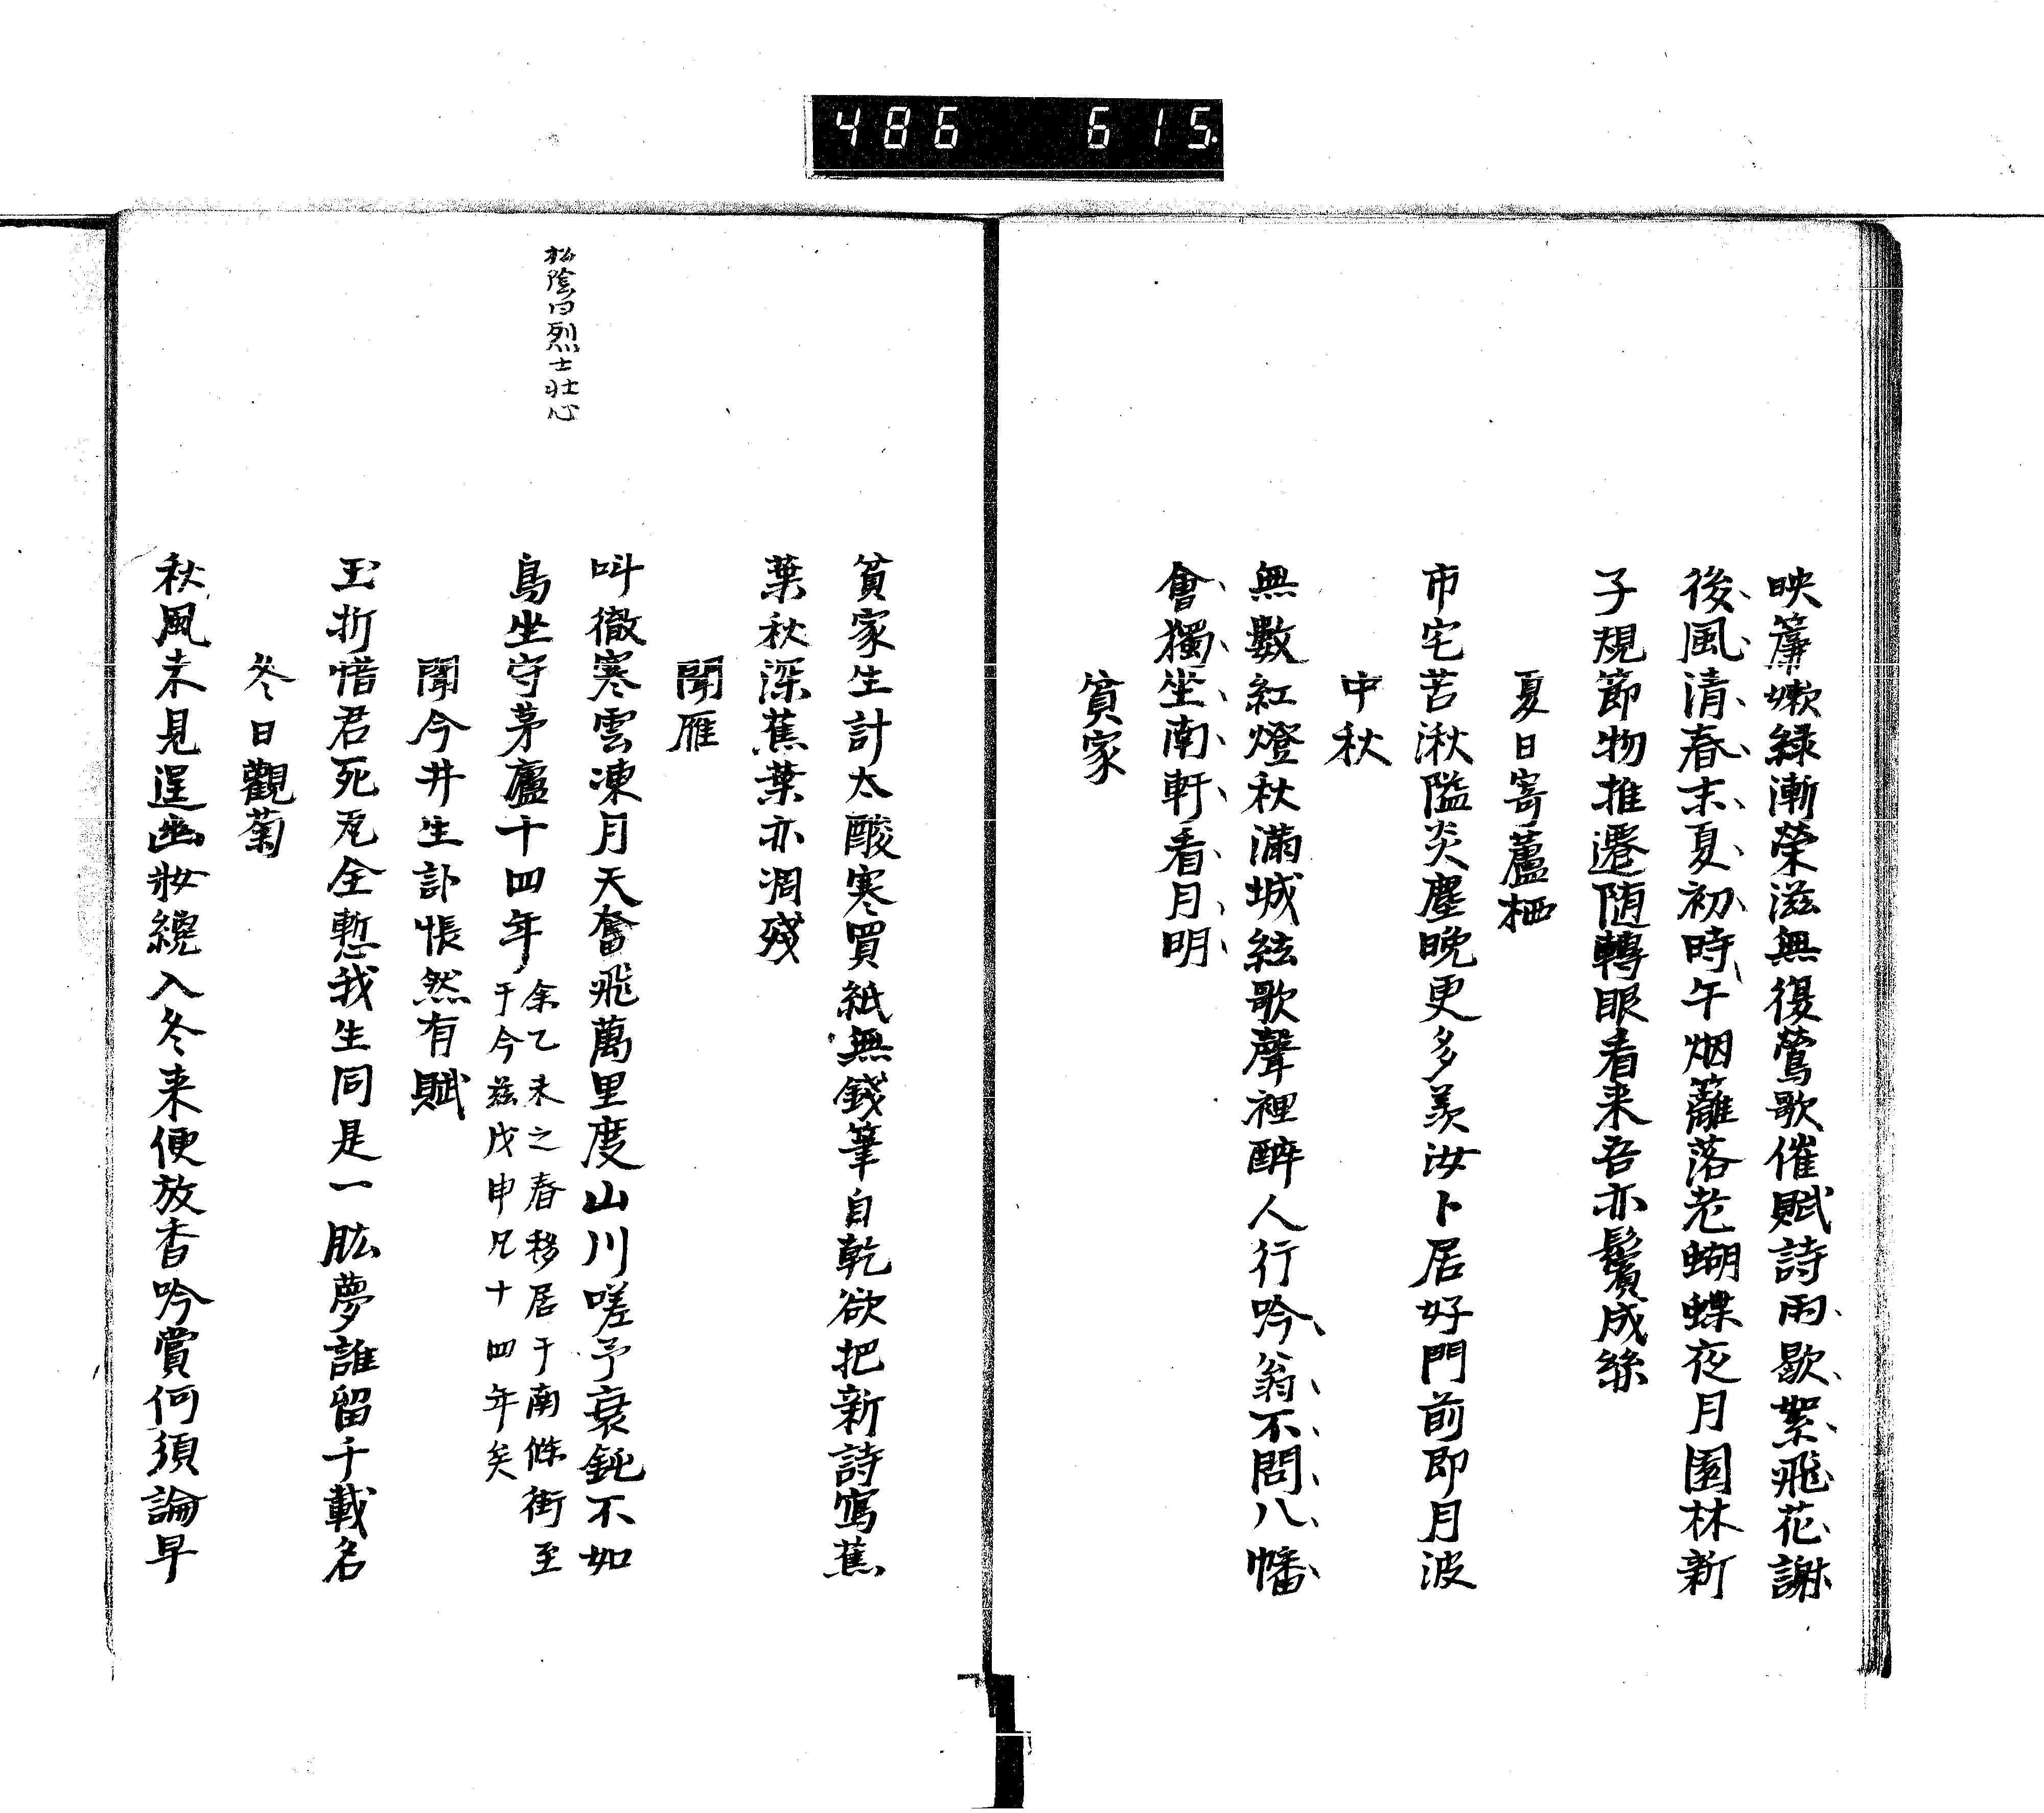 486 615
映簾嫩綠漸榮滋無復鶯歌催賦詩雨歇絮飛花謝
後風清春末夏初時午烟蘺落老蝴蝶夜月園林新
子規節物推遷随轉眼看来吾亦鬢成絲
夏日寄蘆栖
市宅苦湫隘炎塵晚更多羨汝卜居好門前即月波
中秋
無數紅燈秋滿城絃歌聲裡醉人行吟翁不問八幡
會獨坐南軒看月明
貧家
貧家生計太酸寒買紙無錢筆自乾欲把新詩寫蕉
葉秋深蕉葉亦凋殘
聞雁
叫徹寒雲凍月天奮飛萬里度山川嗟予衰鈍不如
鳥坐守茅廬十四年
余乙未之春移居于南條街至
于今茲戊申凡十四年矣
聞今井生訃悵然有賦
松陰曰烈士壯心
玉折惜君死瓦全慙我生同是一肱夢誰留千載名
冬日觀菊
秋風未見逞幽妝纔入冬来便放香吟賞何須論早